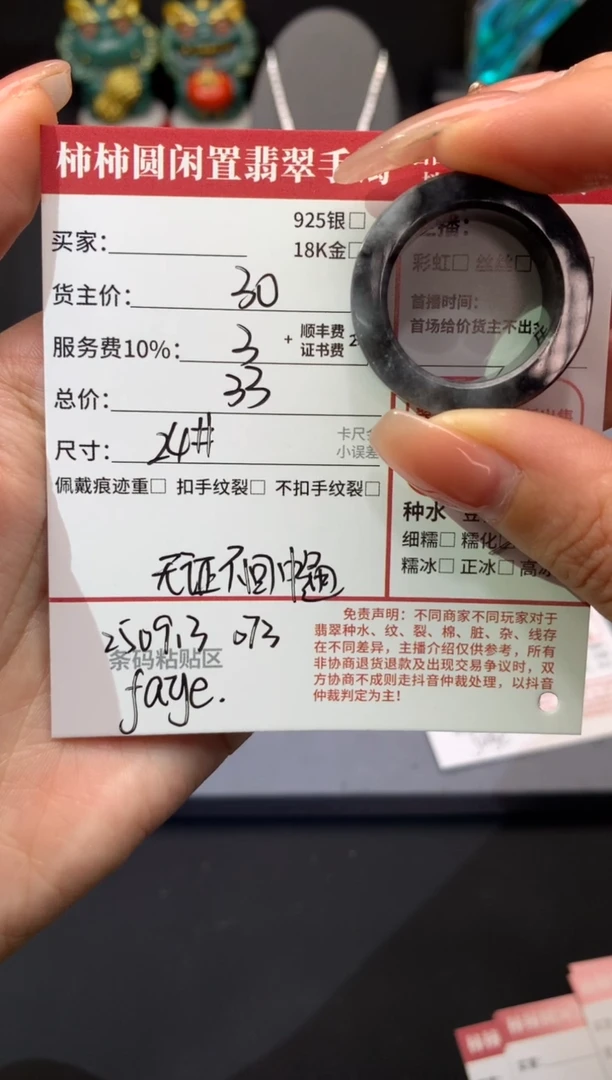 柿柿圆闲置翡翠手
925银□
买家:
18K金□
货主价: 30
服务费10%: 3 + 顺丰费 证书费 2
总价: 33
尺寸: 24#
卡尺
小误差
佩戴痕迹重□ 扣手纹裂□ 不扣手纹裂□
无证不回中通
250913 073
条码粘贴区
faye.
播:
彩虹□ 丝丝□
首播时间:
首场给价货主不出
种水
细糯□ 糯化
糯冰□ 正冰□ 高冰
免责声明: 不同商家不同玩家对于
翡翠种水、纹、裂、棉、脏、杂、线存
在不同差异，主播介绍仅供参考，所有
非协商退货退款及出现交易争议时，双
方协商不成则走抖音仲裁处理，以抖音
仲裁判定为主!